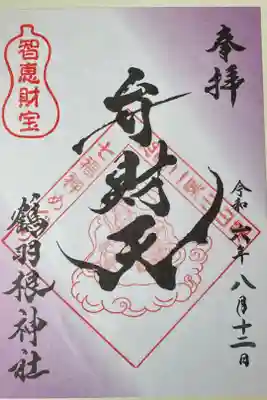 奉拝
令和六年八月十二日
弁財天
鶴羽根神社
智恵財宝
七福神め